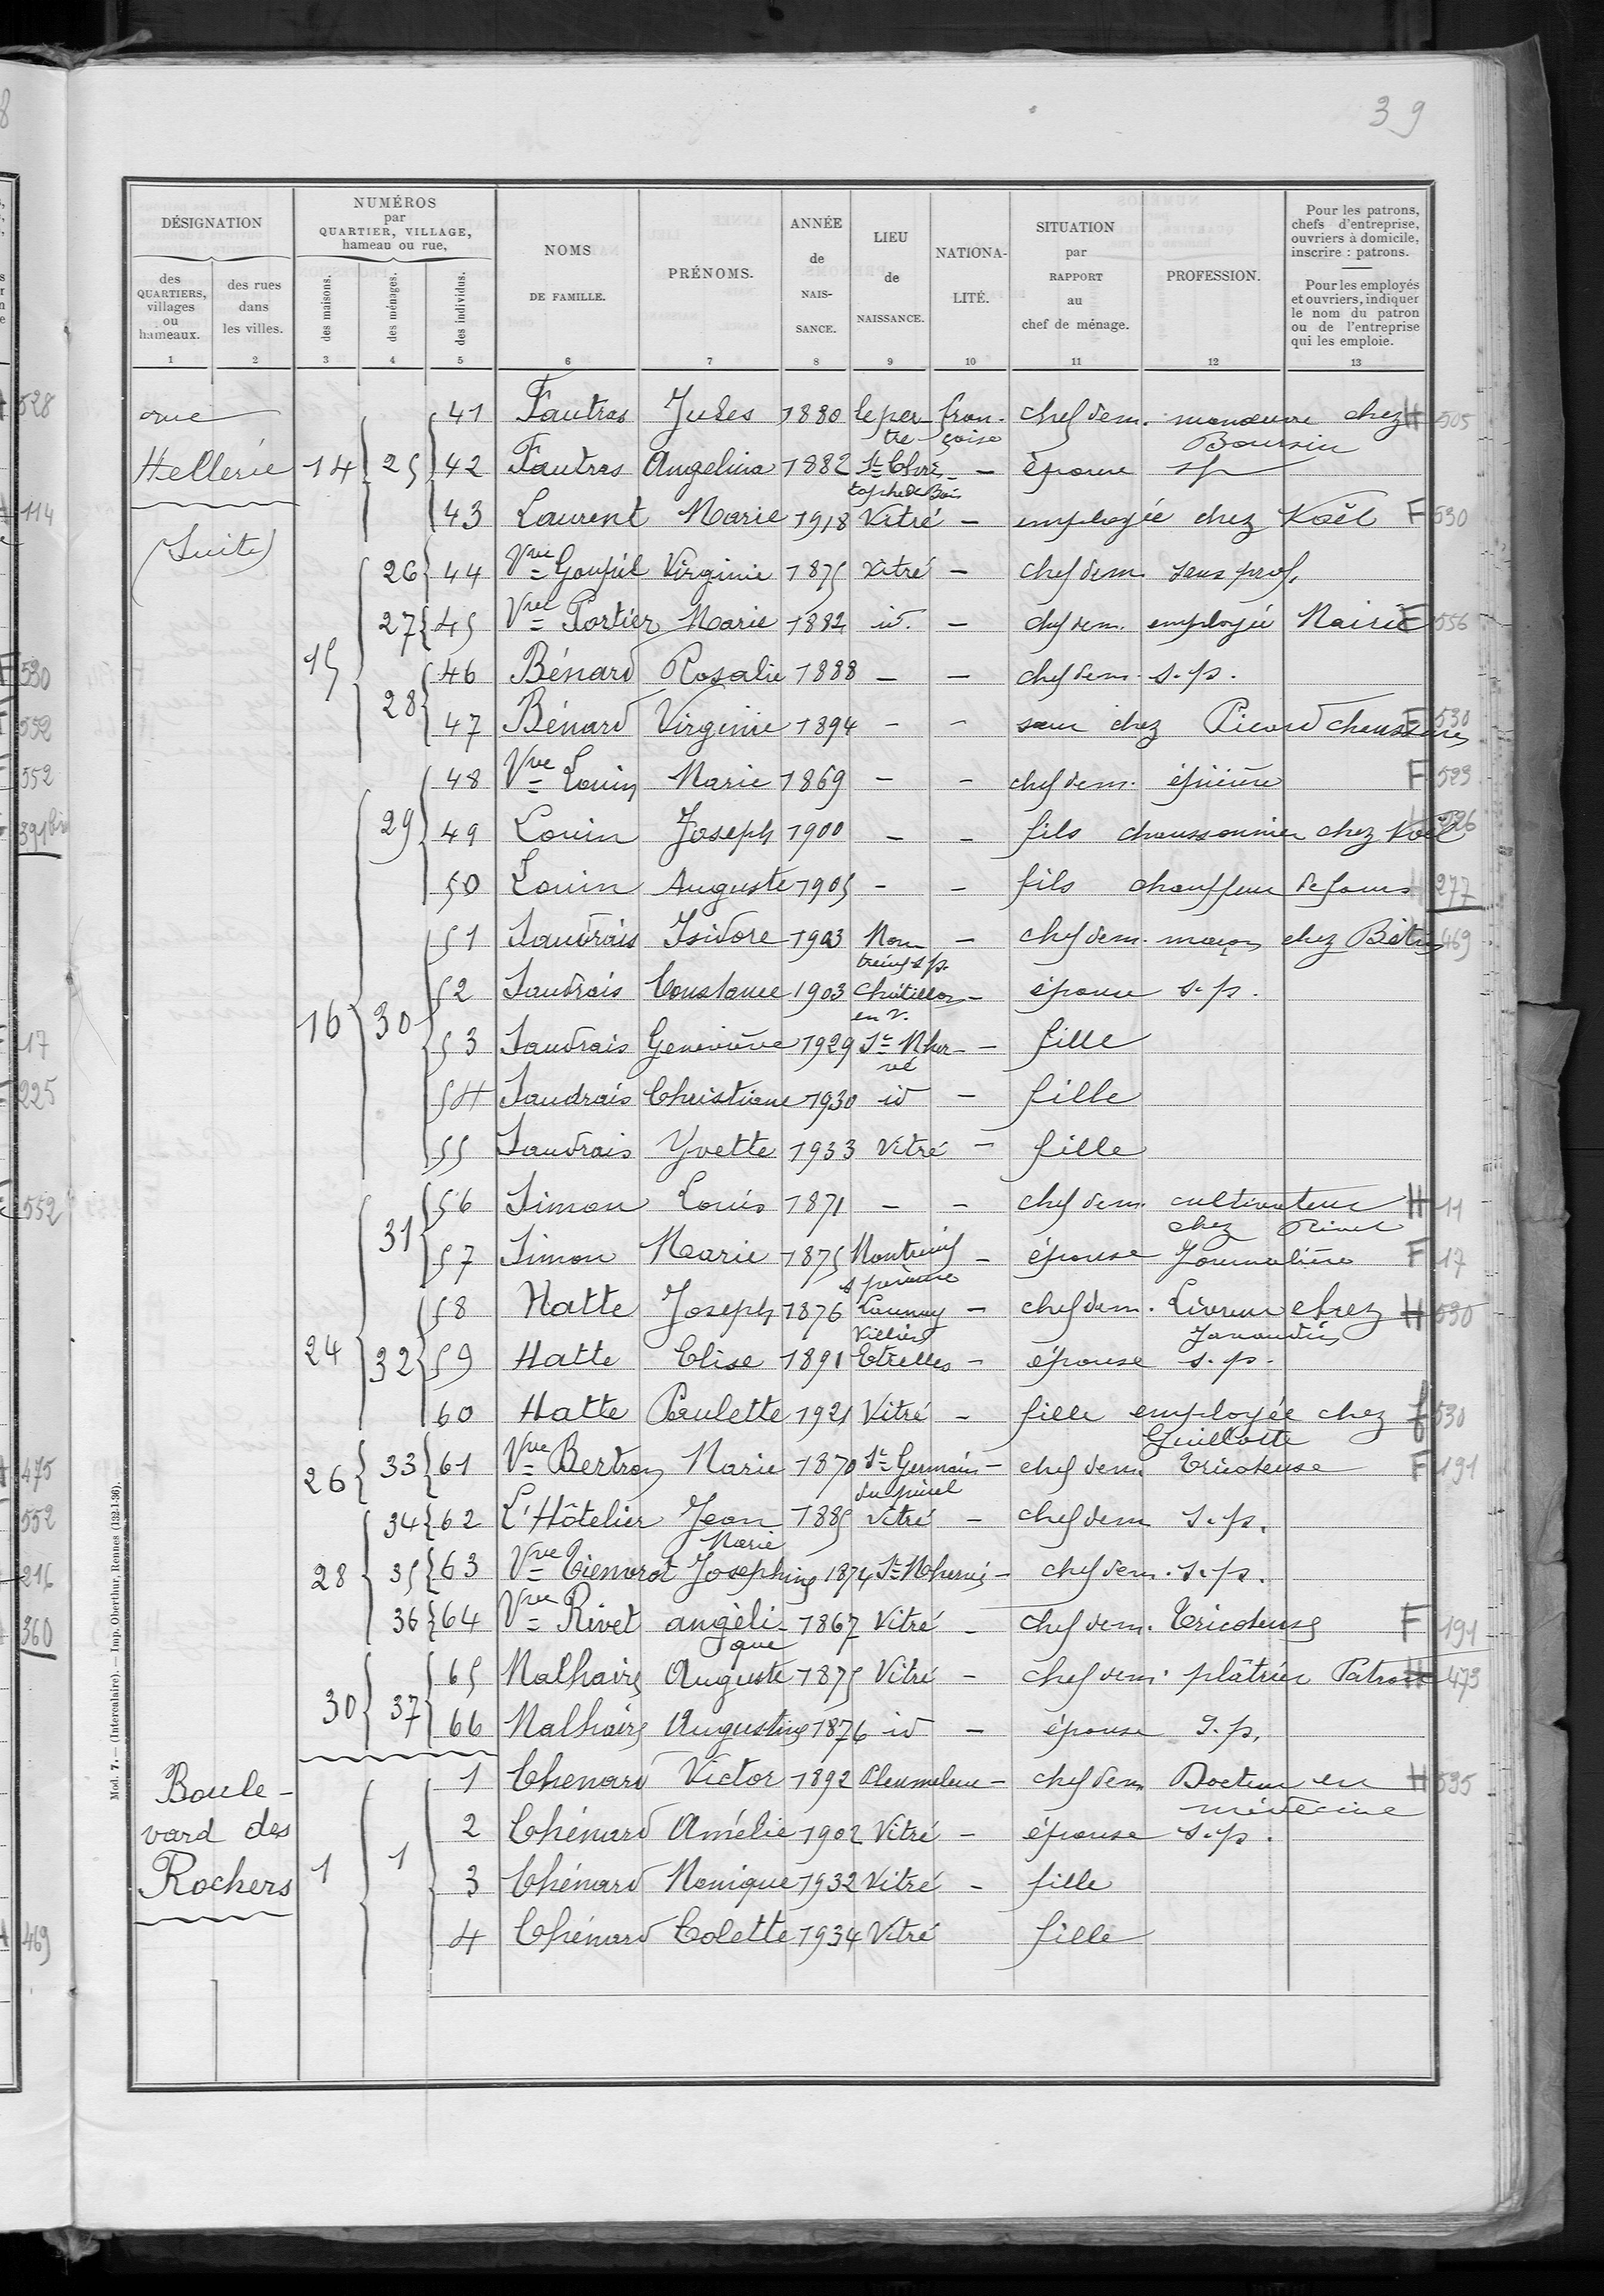 39
DÉSIGNATION
NUMÉROS par QUARTIER, VILLAGE, hameau ou rue,
NOMS DE FAMILLE.
PRÉNOMS.
ANNÉE de NAIS- SANCE.
LIEU de NAISSANCE.
NATIONA- LITÉ.
SITUATION par RAPPORT au chef de ménage.
PROFESSION.
Pour les patrons, chefs d'entreprise, ouvriers à domicile, inscrire : patrons.
Pour les employés et ouvriers, indiquer le nom du patron ou de l'entreprise qui les emploie.
des QUARTIERS, villages ou hameaux.
des rues dans les villes.
des maisons.
des ménages.
des individus.
1 2 3 4 5 6 7 8 9 10 11 12 13
rue Hellerie (Suite)
41 Fautras Jules 1880 le per-tre fran-çaise chef dem. manœuvre chez Boursin H 505
14 25 42 Fautras Angelina 1882 St Chris-tophe de Bois - épouse sp
43 Laurent Marie 1918 Vitré - employée chez Noël F 530
26 44 Vve Goupil Virginie 1875 Vitré - chef dem sans prof.
27 45 Vve Portier Marie 1882 id. - chef dem. employée Mairie F 556
15 46 Bénard Rosalie 1888 - - chef dem. s.p.
28 47 Bénard Virginie 1894 - - sœur chez Picard chaussures F 530
48 Vve Louin Marie 1869 - - chef dem. épicière F 523
29 49 Louin Joseph 1900 - - fils chaussonnier chez Noël
50 Louin Auguste 1905 - - fils chauffeur de fours 277
51 Saudrais Isidore 1903 Mon-treuil s p. - chef dem. maçon chez 469
52 Saudrais Constance 1903 Châtillon en V. - épouse s.p.
16 30 53 Saudrais Geneviève 1929 St Mher-vé - fille
54 Saudrais Christiane 1930 id - fille
55 Saudrais Yvette 1933 Vitré - fille
56 Simon Louis 1871 - - chef dem. cultivateur chez H 11
31 57 Simon Marie 1875 Montreuil s pérouse - épouse Journalière F 17
58 Hatte Joseph 1876 Launay Villiers - chef dem. Livreur chez H 530
24 32 59 Hatte Elise 1891 Etrelles - épouse s.p.
60 Hatte Paulette 1921 Vitré - fille employée chez Guillotte f 530
26 33 61 Vve Bertron Marie 1870 St Germain du pinel - chef dem Tricoteuse F 191
34 62 L'Hôtelier Jean Marie 1885 Vitré - chef dem s.p.
28 35 63 Vve Josephine 1874 St Mhervé - chef dem. s.p.
36 64 Vve Rivet angéli-que 1867 Vitré - chef dem. Tricoteuse F 191
65 Malhaire Auguste 1875 Vitré - chef dem. plâtrier Patron H 473
30 37 66 Malhaire Augustine 1876 id - épouse s.p.
Boule-vard des Rochers
1 Chenard Victor 1892 Pleumeleuc - chef dem Docteur en médecine H 535
2 Chénard Amélie 1902 Vitré - épouse s.p.
1 1 3 Chénard Monique 1932 Vitré - fille
4 Chénard Colette 1934 Vitré fille
Mod. 7. — (Intercalaire). — Imp. Oberthur, Rennes (132-1-36).
528
114
530
552
552
391 bis
17
225
552
475
552
216
360
469